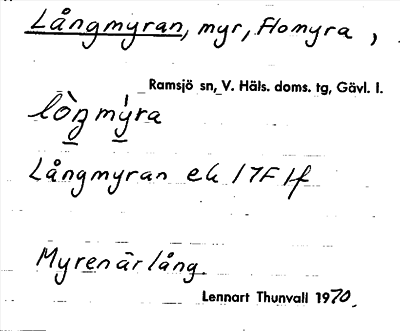 Långmyran, myr, Flomyra,
Ramsjö sn, V. Häls. doms. tg, Gävl. l.
lòŋmy̗ra
Långmyran ek 17F 1f
Myren är lång.
Lennart Thunvall 1970.